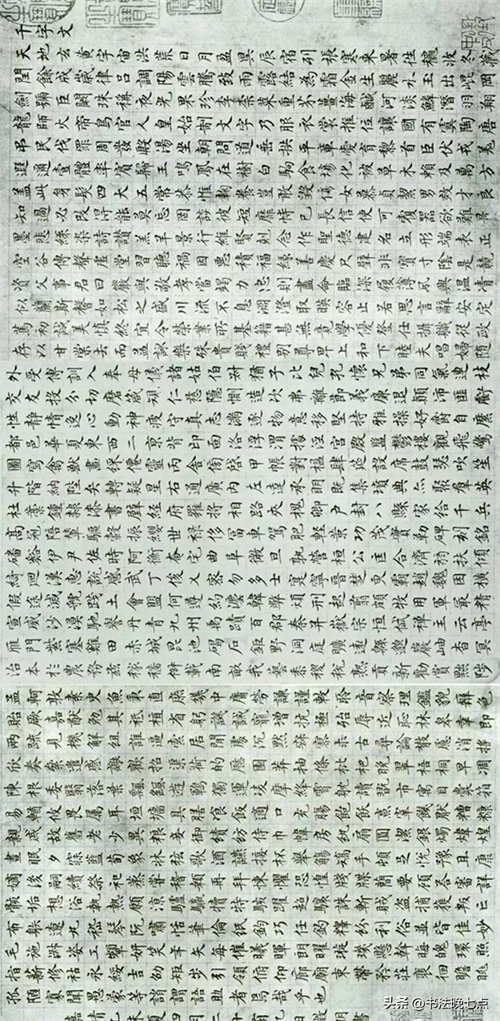 千字文
天地玄黃宇宙洪荒日月盈昃辰宿列張寒來暑往穐收冬藏
閏餘成歲律呂調陽雲騰致雨露結為霜金生麗水玉出崑岡
劍號巨闕珠稱夜光果珍李柰菜重芥薑海鹹河淡鱗潛羽翔
龍師火帝鳥官人皇始制文字乃服衣裳推位讓國有虞陶唐
弔民伐罪周發殷湯坐朝問道垂拱平章愛育黎首臣伏戎羌
遐邇壹體率賓歸王鳴鳳在樹白駒食場化被草木賴及萬方
蓋此身髮四大五常恭惟鞠養豈敢毀傷女慕貞潔男效才良
知過必改得能莫忘罔談彼短靡恃己長信使可覆器欲難量
墨悲絲染詩讚羔羊景行維賢剋念作聖德建名立形端表正
空谷傳聲虛堂習聽禍因惡積福緣善慶尺璧非寶寸陰是競
資父事君曰嚴與敬孝當竭力忠則盡命臨深履薄夙興溫凊
似蘭斯馨如松之盛川流不息淵澄取映容止若思言辭安定
篤初誠美慎終宜令榮業所基籍甚無竟學優登仕攝職從政
存以甘棠去而益詠樂殊貴賤禮別尊卑上和下睦夫唱婦隨
外受傅訓入奉母儀諸姑伯叔猶子比兒孔懷兄弟同氣連枝
交友投分切磨箴規仁慈隱惻造次弗離節義廉退顛沛匪虧
性靜情逸心動神疲守真志滿逐物意移堅持雅操好爵自縻
都邑華夏東西二京背邙面洛浮渭據涇宮殿盤鬱樓觀飛驚
圖寫禽獸畫綵僊靈丙舍傍啟甲帳對楹肆筵設席鼓瑟吹笙
升階納陛弁轉疑星右通廣內左達承明既集墳典亦聚群英
杜稾鍾隸漆書壁經府羅將相路俠槐卿戶封八縣家給千兵
高冠陪輦驅轂振纓世祿侈富車駕肥輕策功茂實勒碑刻銘
磻谿伊尹佐時阿衡奄宅曲阜微旦孰營桓公匡合濟弱扶傾
綺迴漢惠說感武丁俊乂密勿多士寔寧晉楚更霸趙魏困橫
假途滅虢踐土會盟何遵約法韓弊煩刑起翦頗牧用軍最精
宣威沙漠馳譽丹青九州禹蹟百郡秦并嶽宗恒岱禪主云亭
雁門紫塞雞田赤城昆池碣石鉅野洞庭曠遠綿邈巖岫杳冥
治本於農務茲稼穡俶載南畝我藝黍稷稅熟貢新勸賞黜陟
孟軻敦素史魚秉直庶幾中庸勞謙謹敕聆音察理鑑貌辨色
貽厥嘉猷勉其祗植省躬譏誡寵增抗極殆辱近恥林皋幸即
兩疏見機解組誰逼索居閒處沉默寂寥求古尋論散慮逍遙
欣奏累遣慼謝歡招渠荷的歷園莽抽條枇杷晚翠梧桐早凋
陳根委翳落葉飄颻遊鵾獨運凌摩絳霄耽讀翫市寓目囊箱
易輶攸畏屬耳垣牆具膳飡飯適口充腸飽飫烹宰飢厭糟糠
親戚故舊老少異糧妾御績紡侍巾帷房紈扇圓潔銀燭煒煌
晝眠夕寐藍筍象床絃歌酒讌接杯舉觴矯手頓足悅豫且康
嫡後嗣續祭祀蒸嘗稽顙再拜悚懼恐惶牋牒簡要顧答審詳
骸垢想浴執熱願涼驢騾犢特駭躍超驤誅斬賊盜捕獲叛亡
布射遼丸嵇琴阮嘯恬筆倫紙鈞巧任釣釋紛利俗並皆佳妙
毛施淑姿工顰妍笑年矢每催曦暉朗曜璇璣懸斡晦魄環照
指薪修祜永綏吉劭矩步引領俯仰廊廟束帶矜莊徘徊瞻眺
孤陋寡聞愚蒙等誚謂語助者焉哉乎也
头条 @书法晚七点